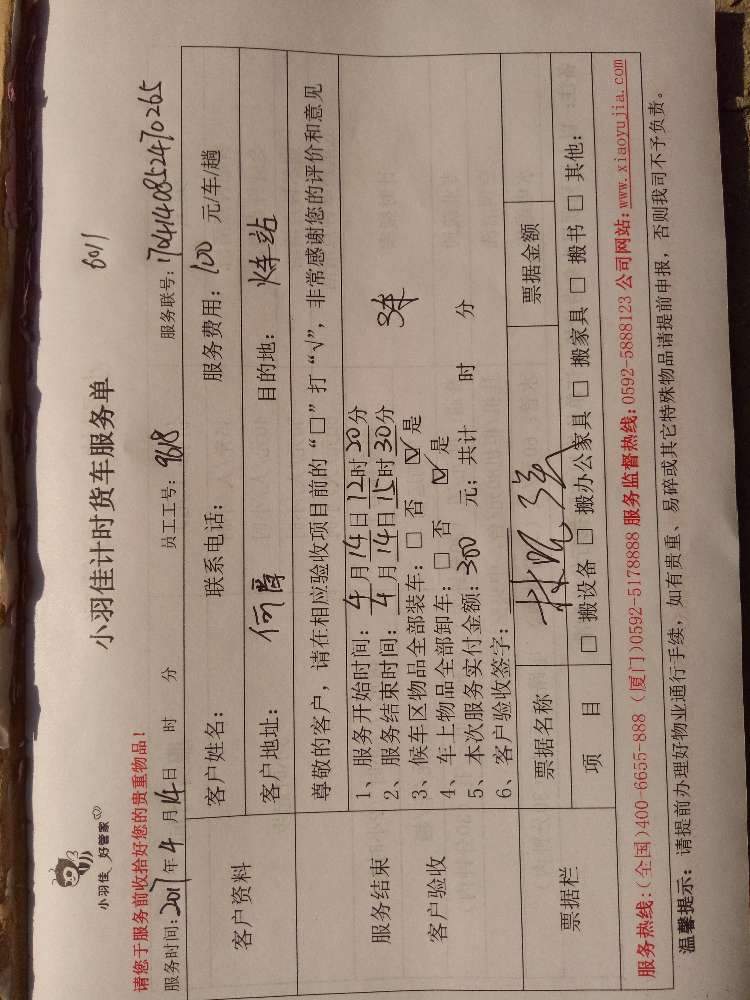 小羽佳 好管家
小羽佳计时货车服务单
6011
请您于服务前收拾好您的贵重物品!
服务时间: 2017年4月14日 时 分 员工工号: 9618 服务联号: 170414085247026S
客户资料
客户姓名: 联系电话: 服务费用: 100 元/车/趟
客户地址: 何厝 目的地: 火车站
服务结束
客户验收
尊敬的客户,请在相应验收项目前的“□”打“√”,非常感谢您的评价和意见
1、服务开始时间: 4月14日12时30分
2、服务结束时间: 4月14日15时30分 3车
3、候车区物品全部装车: □ 否 ☑ 是
4、车上物品全部卸车: □ 否 ☑ 是
5、本次服务实付金额: 300 元; 共计 时 分
6、客户验收签字:
票据栏
票据名称 票据金额
项 目 □ 搬设备 □ 搬办公家具 □ 搬家具 □ 搬书 □ 其他:
服务热线:(全国)400-6655-888 (厦门)0592-5178888 服务监督热线:0592-5888123 公司网站:www.xiaoyujia.com
温馨提示: 请提前办理好物业通行手续,如有贵重、易碎或其它特殊物品请提前申报,否则我司不予负责。